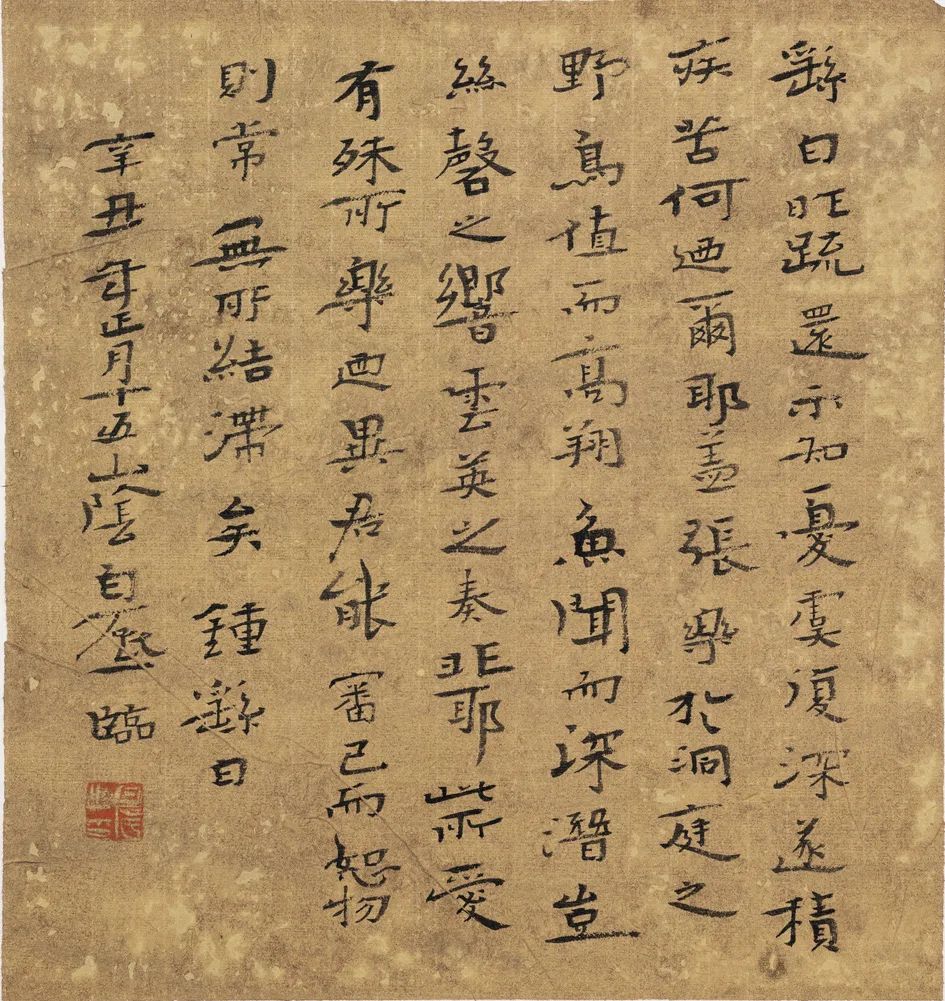 繇白昨疏還示知憂虞復深遂積
疾苦何迺爾耶蓋張樂於洞庭之
野鳥值而高翔魚聞而深潛豈
絲磬之響雲英之奏非耶此所愛
有殊所樂迺異君能審己而恕物
則常無所結滯矣鍾繇白
辛丑年正月十五山陰白臨